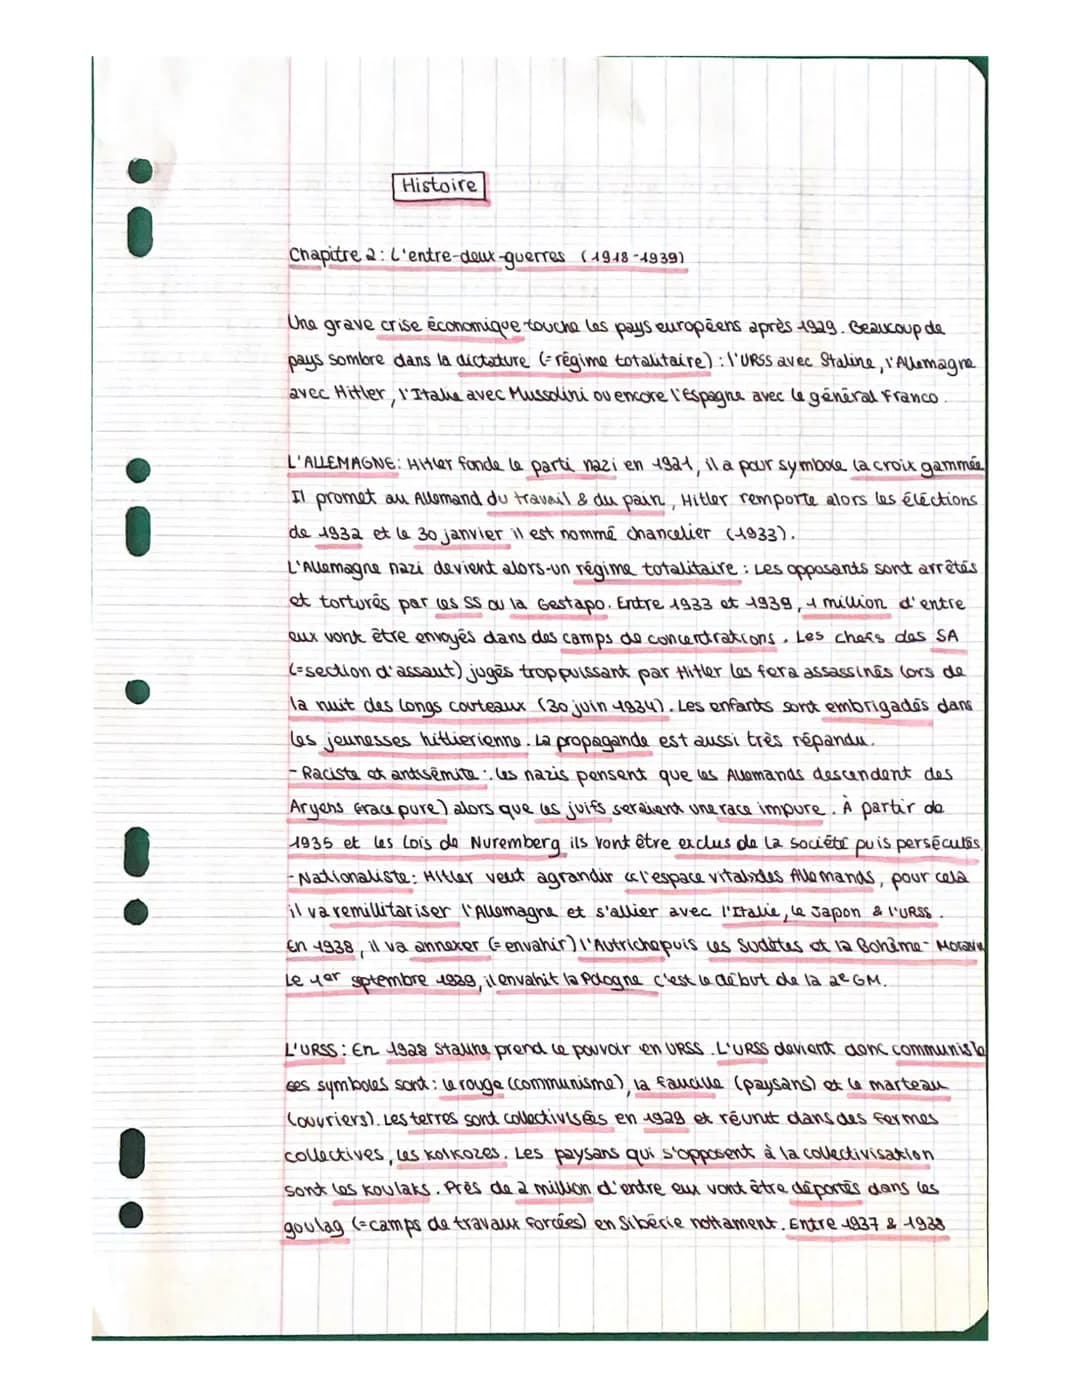 Histoire
Chapitre 2: L'entre-deux-guerres (1918-1939)
Une grave crise économique touche les pays européens après 1929. Beaucoup de
pays sombre dans la dictature (=régime totalitaire) : l'URSS avec Staline, l'Allemagne
avec Hitler, l'Italie avec Mussolini ou encore l'Espagne avec le général Franco.
L'ALLEMAGNE: Hitler fonde le parti nazi en 1921, il a pour symbole la croix gammée
Il promet au Allemand du travail & du pain, Hitler remporte alors les élections
de 1932 et le 30 janvier il est nommé chancelier (1933).
L'Allemagne nazi devient alors un régime totalitaire : Les opposants sont arrêtés
et torturés par les SS ou la Gestapo. Entre 1933 et 1939, 1 million d'entre
eux vont être envoyés dans des camps de concentrations. Les chefs des SA
(=section d'assaut) jugés trop puissant par Hitler les fera assassinés lors de
la nuit des longs couteaux (30 juin 1934). Les enfants sont embrigadés dans
les jeunesses hitlierienne. La propagande est aussi très répandu.
- Raciste et antisémite : les nazis pensent que les Allemands descendent des
Aryens (race pure) alors que les juifs seraient une race impure. À partir de
1935 et les lois de Nuremberg ils vont être exclus de la société puis persécutés
- Nationaliste: Hitler veut agrandir l'espace vital des Allemands, pour cela
il va remillitariser l'Allemagne et s'allier avec l'Italie, le Japon & l'URSS.
En 1938, il va annexer (=envahir) l'Autriche puis les Sudètes et la Bohême-Moravie
Le 1er septembre 1939, il envahit la Pologne c'est le début de la 2e GM.
L'URSS: En 1928 Staline prend le pouvoir en URSS. L'URSS devient donc communiste
ses symboles sont: le rouge (communisme), la faucille (paysans) et le marteau
(ouvriers). Les terres sont collectivisées en 1929 et réunit dans des fermes
collectives, les kolkozes. Les paysans qui s'opposent à la collectivisation
sont les koulaks. Près de 2 million d'entre eux vont être déportés dans les
goulag (=camps de travaux forcées) en Sibérie nottament. Entre 1937 & 1938